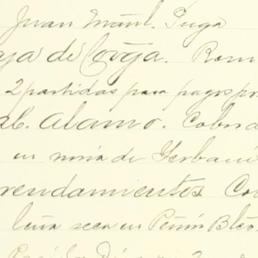 Juan Manl. Puga
aja de Conga. Rom
2 partidas para pagos pr
al. Alamo. Cobra
en noria de Yerbani
rendamientos Co
leña seca en Peñón Blco